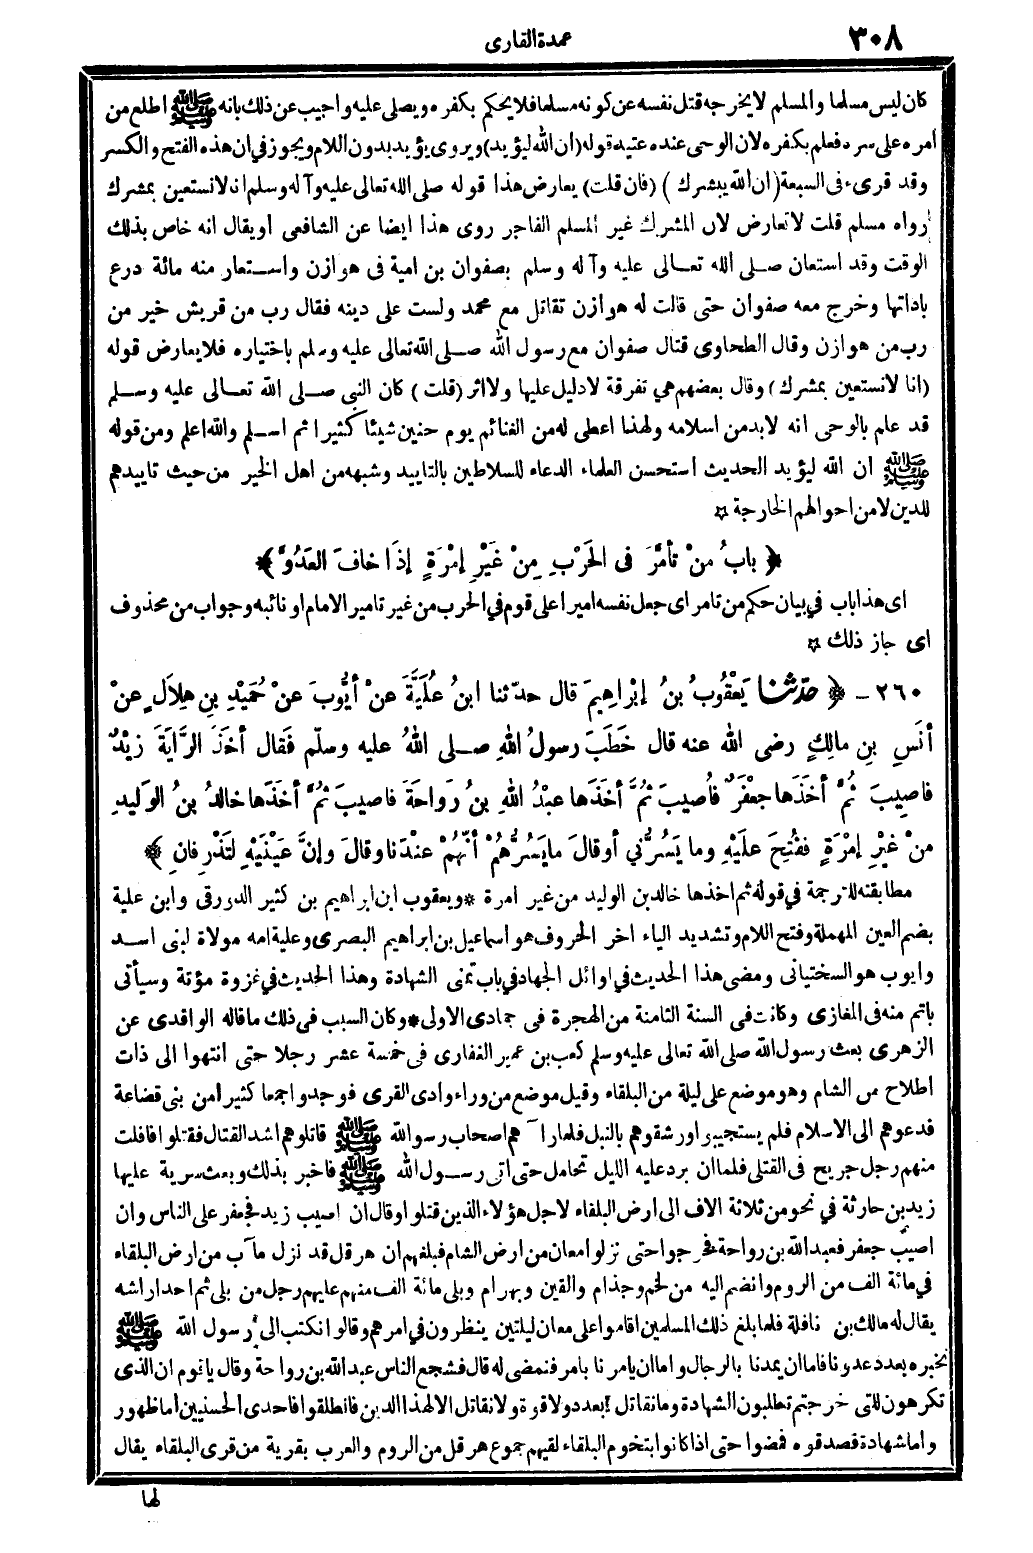 ٣٠٨
عمدة القارى
كان ليس مسلما والمسلم لا يخرجه قتل نفسه عن كونه مسلما فلا يحكم بكفره ويصلى عليه واجيب عن ذلك بانه ﷺ اطلع من
أمره على سره فعلم بكفره لان الوحى عنده عتيد قوله (ان الله ليؤيد) ويروى يؤيد بدون اللام ويجوز فى ان هذه الفتح والكسر
وقد قرىء فى السبعة (ان الله يبشرك) (فان قلت) يعارض هذا قوله صلى الله تعالى عليه وآله وسلم انه لا نستعين بمشرك
رواه مسلم قلت لا تعارض لان المشرك غير المسلم الفاجر روى هذا ايضا عن الشافعى أو يقال انه خاص بذلك
الوقت وقد استعان صلى الله تعالى عليه وآله وسلم بصفوان بن امية فى هوازن واستعار منه مائة درع
باداتها وخرج معه صفوان حتى قالت له هوازن تقاتل مع محمد ولست على دينه فقال رب من قريش خير من
رب من هوازن وقال الطحاوى قتال صفوان مع رسول الله صلى الله تعالى عليه وسلم باختياره فلا يعارض قوله
(انا لا نستعين بمشرك) وقال بعضهم هي تفرقة لا دليل عليها ولا اثر (قلت) كان النبى صلى الله تعالى عليه وسلم
قد علم بالوحى انه لا بد من اسلامه ولهذا اعطى له من الغنائم يوم حنين شيئا كثيرا ثم اسلم والله اعلم ومن قوله
ﷺ ان الله ليؤيد الحديث استحسن العلماء الدعاء للسلاطين بالتاييد وشبهه من اهل الخير من حيث تاييدهم
للدين لا من احوالهم الخارجة ☆
﴿ بابُ منْ تأمَّرَ فى الحَرْبِ مِنْ غَيْرِ إمْرَةٍ إذَا خافَ العَدُوَّ ﴾
اى هذا باب في بيان حكم من تامر اى جعل نفسه اميرا على قوم في الحرب من غير تامير الامام او نائبه وجواب من محذوف
اى جاز ذلك ☆
٢٦٠ - ﴿ حدّثنا يَعْقُوبُ بنُ إبْراهِيمَ قال حدّثنا ابنُ عُلَيَّةَ عنْ أيُّوبَ عنْ حُمَيْدِ بنِ هِلَالٍ عنْ
أنَسِ بنِ مالِكٍ رضى الله عنه قال خَطَبَ رسولُ اللهِ صلى اللهُ عليه وسلّم فَقال أخَذَ الرَّايَةَ زَيْدٌ
فاصِيبَ ثُمَّ أخَذَها جعْفَرٌ فاُصيبَ ثُمَّ أخَذَها عبْدُ اللهِ بنُ رَواحَةَ فاصيبَ ثُمَّ أخَذَها خالدُ بنُ الوَليدِ
منْ غَيْرِ إمْرَةٍ ففُتِحَ علَيْهِ وما يَسُرُّني أوقالَ مايَسُرُّهُمْ أنَّهُمْ عنْدَنا وقالَ وإنَّ عَيْنَيْهِ لَتَذْرِفانِ ﴾
مطابقته للترجمة في قوله ثم اخذها خالد بن الوليد من غير امرة * ويعقوب ابن ابراهيم بن كثير الدورقى وابن علية
بضم العين المهملة وفتح اللام وتشديد الياء اخر الحروف هو اسماعيل بن ابراهيم البصرى وعلية امه مولاة لبنى اسد
وايوب هو السختيانى ومضى هذا الحديث في اوائل الجهاد في باب تمنى الشهادة وهذا الحديث في غزوة مؤتة وسيأتى
باتم منه فى المغازى وكانت فى السنة الثامنة من الهجرة فى جمادى الاولى * وكان السبب فى ذلك ما قاله الواقدى عن
الزهرى بعث رسول الله صلى الله تعالى عليه وسلم كعب بن عمير الغفارى فى خمسة عشر رجلا حتى انتهوا الى ذات
اطلاح من الشام وهو موضع على ليلة من البلقاء وقيل موضع من وراء وادى القرى فوجدوا جمعا كثيرا من بنى قضاعة
فدعوهم الى الاسلام فلم يستجيبوا ورشقوهم بالنبل فلما رآهم اصحاب رسول الله ﷺ قاتلوهم اشد القتال فقتلوا فافلت
منهم رجل جريح فى القتلى فلما ان برد عليه الليل تحامل حتى اتى رسول الله ﷺ فاخبر بذلك وبعث سرية عليها
زيد بن حارثة في نحو من ثلاثة الاف الى ارض البلقاء لاجل هؤلاء الذين قتلوا وقال ان اصيب زيد فجعفر على الناس وان
اصيب جعفر فعبد الله بن رواحة فخرجوا حتى نزلوا معان من ارض الشام فبلغهم ان هرقل قد نزل مآب من ارض البلقاء
في مائة الف من الروم وانضم اليه من لخم وجذام والقين وبهرام وبلى مائة الف منهم عليهم رجل من بلى ثم احد اراشه
يقال له مالك بن نافلة فلما بلغ ذلك المسلمين اقاموا على معان ليلتين ينظرون في امرهم وقالوا نكتب الى رسول الله ﷺ
نخبره بعدد عدونا فاما ان يمدنا بالرجال واما ان يامرنا بامر فنمضى له قال فشجع الناس عبد الله بن رواحة وقال يا قوم ان الذى
تكرهون للتى خرجتم تطلبون الشهادة وما نقاتل بعدد ولا قوة ولا نقاتل الا لهذا الدين فانطلقوا فاحدى الحسنيين اما ظهور
واما شهادة قصدقوه فمضوا حتى اذا كانوا بتخوم البلقاء لقيهم جموع هرقل من الروم والعرب بقرية من قرى البلقاء يقال
لها